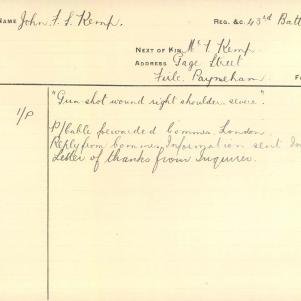 NAME John F. S. Kemp. REG. &C. 43rd Batt
NEXT OF KIN Mr F Kemp.
ADDRESS Gage Street
Firle. Payneham
"Gun shot wound right shoulder, severe".
1/P
P/bable forwarded Commrs London.
Reply from Commrs Information sent In
Letter of thanks from Inquirer.